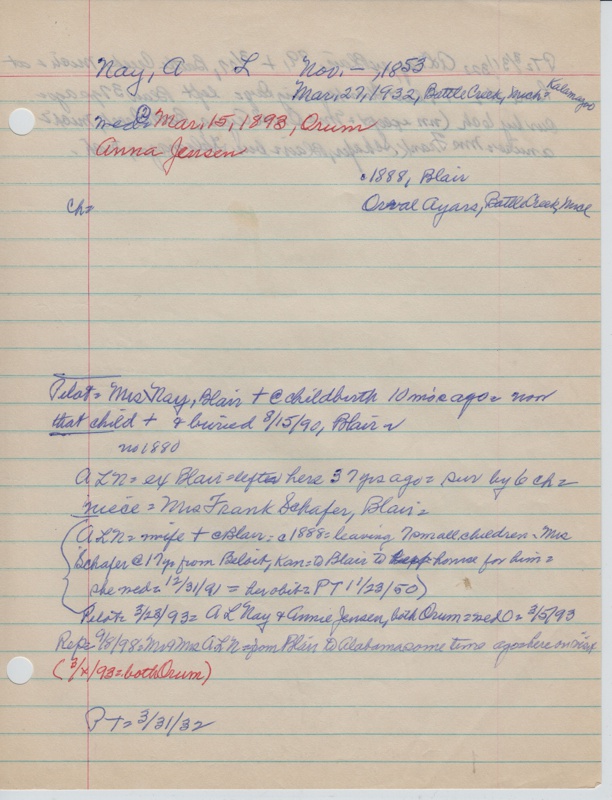 Nay, A L Nov. –, 1853
Mar. 27, 1932, Battle Creek, Mich = Kalamazoo
wed② = Mar. 15, 1893, Orum
Anna Jensen
c1888, Blair
Orval Ayars, Battle Creek, Mich
ch=
Pilot = Mrs Nay, Blair + @ childbirth 10 mos ago = now
that child + & buried 8/15/90, Blair =
no 1880
A L N = ex Blair = left here 37 yrs ago = sur by 6 ch =
niece = Mrs Frank Schafer, Blair =
(A L N = wife + @ Blair = c1888 = leaving 7 small children = Mrs
Schafer @ 17 yr from Beloit, Kan = to Blair to keep house for him =
she wed = 12/31/91 = her obit = PT 11/23/50)
Pilot = 3/23/93 = A L Nay & Annie Jensen, both Orum = wed = 3/15/93
Rep = 9/8/98 = Mr & Mrs A L N = from Blair to Alabama some time ago = here on
(3/x/93 = both Orum)
PT = 3/31/32